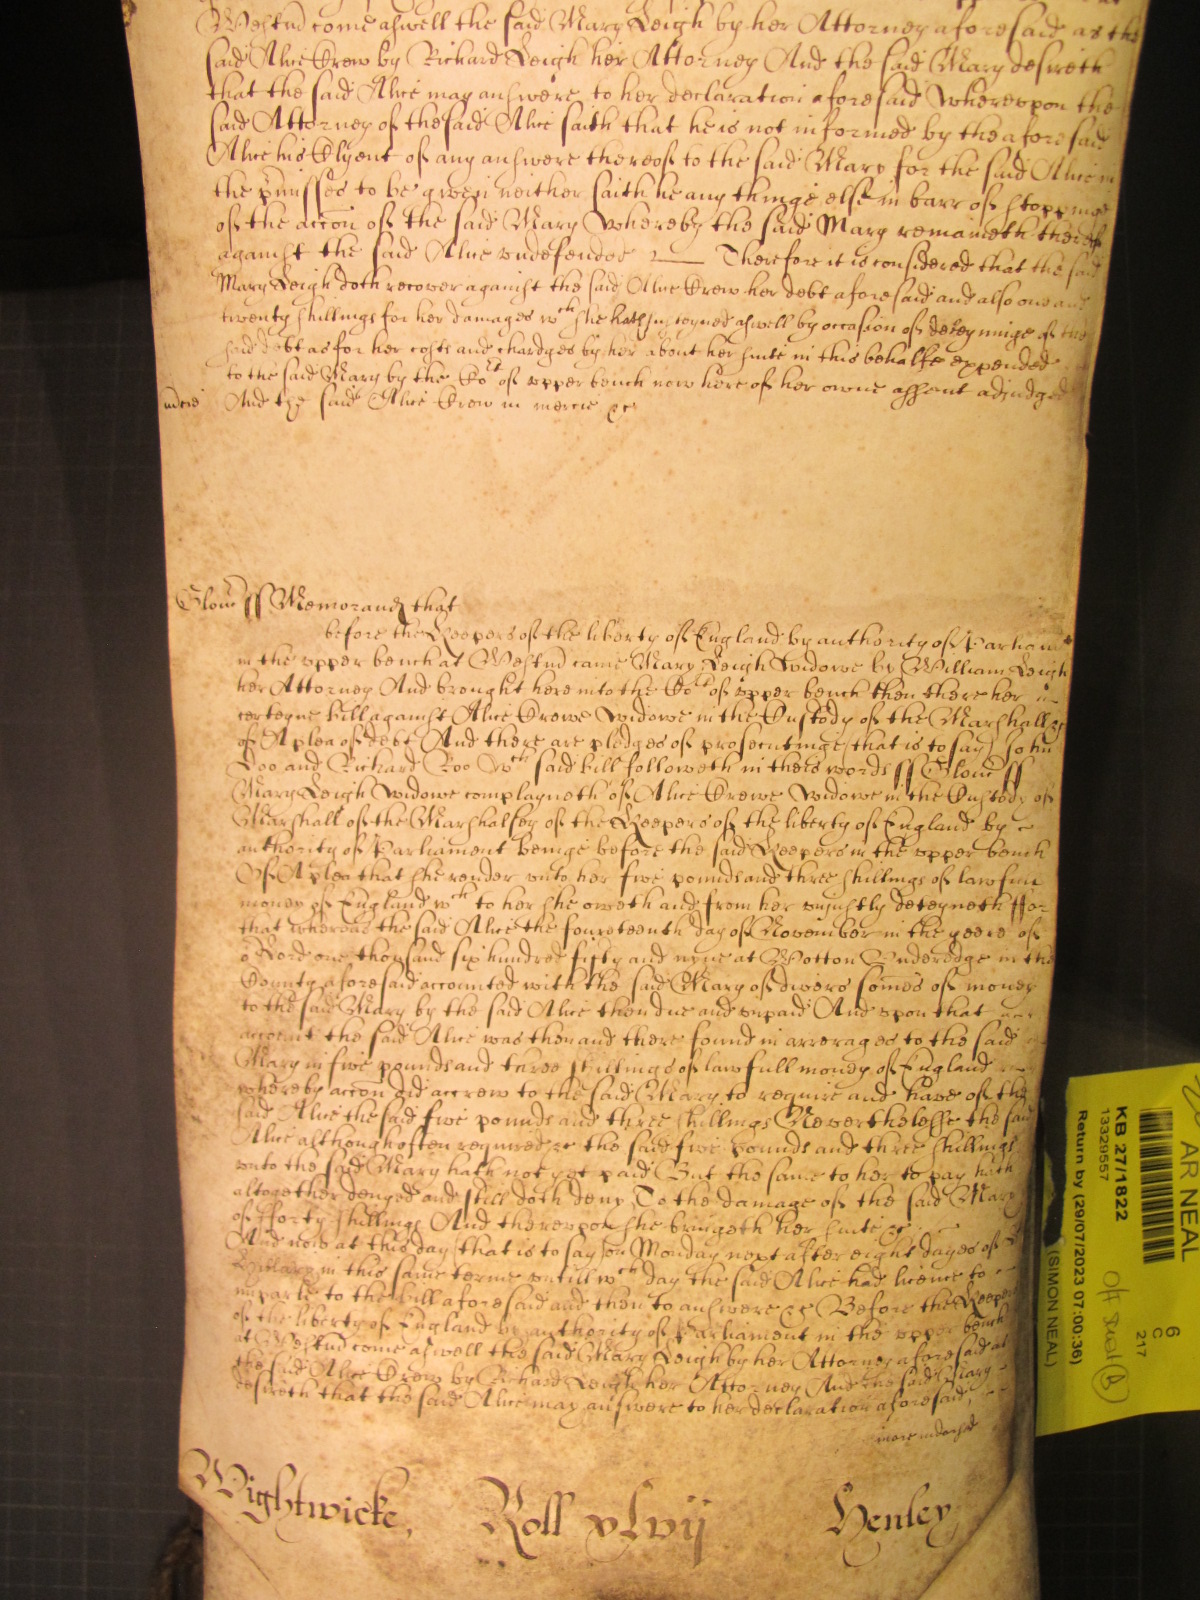 Westm̃ come aswell the said Mary Leigh by her Attorney aforesaid as the
said Alice Crew by Richard Leigh her Attorney And the said Mary desireth
that the said Alice may answere to her declaration aforesaid Wherevpon the
said Attorney of the said Alice saith that he is not informed by the aforesaid
Alice his Clyent of any answere thereof to the said Mary for the said Alice in
the p̃misses to be given neither saith he any thinge else in barr or stoppinge
of the acc̃on of the said Mary Whereby the said Mary remaineth thereof
against the said Alice vndefended Therefore it is considered that the said
Mary Leigh doth recover against the said Alice Crew her debt aforesaid and also one and
twenty shillings for her damages wch she hath susteyned aswell by occasion of deteyninge of the
said debt as for her costs and chardges by her about her suite in this behalfe expended
to the said Mary by the Cort of vpper bench now here of her owne assent adjudged
And the said Alice Crew in mercie &c
Glouc ss Memorand that
before the Keepers of the liberty of England by authority of Parliamt
in the vpper bench at Westm̃ came Mary Leigh Widowe by William Leigh
her Attorney And brought here into the Cort of vpper bench then there her
certeyne bill against Alice Crewe Widowe in the Custody of the Marshall &c
of A plea of debt And there are pledges of prosecutinge that is to say John
Doo and Richard Roo Wch said bill followeth in theis words ss Glouc ss
Mary Leigh Widowe complayneth of Alice Crewe Widowe in the Custody of
Marshall of the Marshalsey of the Keepers of the liberty of England by
authority of Parliament beinge before the said Keepers in the vpper bench
Of A plea that she render vnto her five pounds and three shillings of lawfull
money of England wch to her she oweth and from her vniustly deteyneth ffor
that whereas the said Alice the fourteenth day of November in the yeere of
or Lord one thousand six hundred fifty and nyne at Wotton Vnderedge in the
County aforesaid accounted with the said Mary of divers som̃es of money
to the said Mary by the said Alice then due and vnpaid And vpon that
account the said Alice was then and there found in arrerages to the said
Mary in five pounds and three shillings of lawfull money of England
whereby acc̃on did accrew to the said Mary to require and have of the
said Alice the said five pounds and three shillings Neverthelesse the said
Alice although often required &c the said five pounds and three shillings
vnto the said Mary hath not yet paid But the same to her to pay hath
altogether denyed and still doth deny To the damage of the said Mary
of fforty shillings And therevpon she bringeth her suite &c
And now at this day that is to say on Monday next after eight dayes of
Hillary in this same terme vntill wch day the said Alice had licence to
imparle to the bill aforesaid and then to answere &c Before the Keepers
of the liberty of England by authority of Parliament in the vpper bench
at Westm̃ come aswell the said Mary Leigh by her Attorney aforesaid as
the said Alice Crew by Richard Leigh her Attorney And the said Mary
desireth that the said Alice may answere to her declaration aforesaid
more indorsed
Wightwicke, Roll xlvij Henley
AR NEAL
KB 27/1822
13329557
Return by (29/07/2023 07:00:36)
(SIMON NEAL)
6
C
217